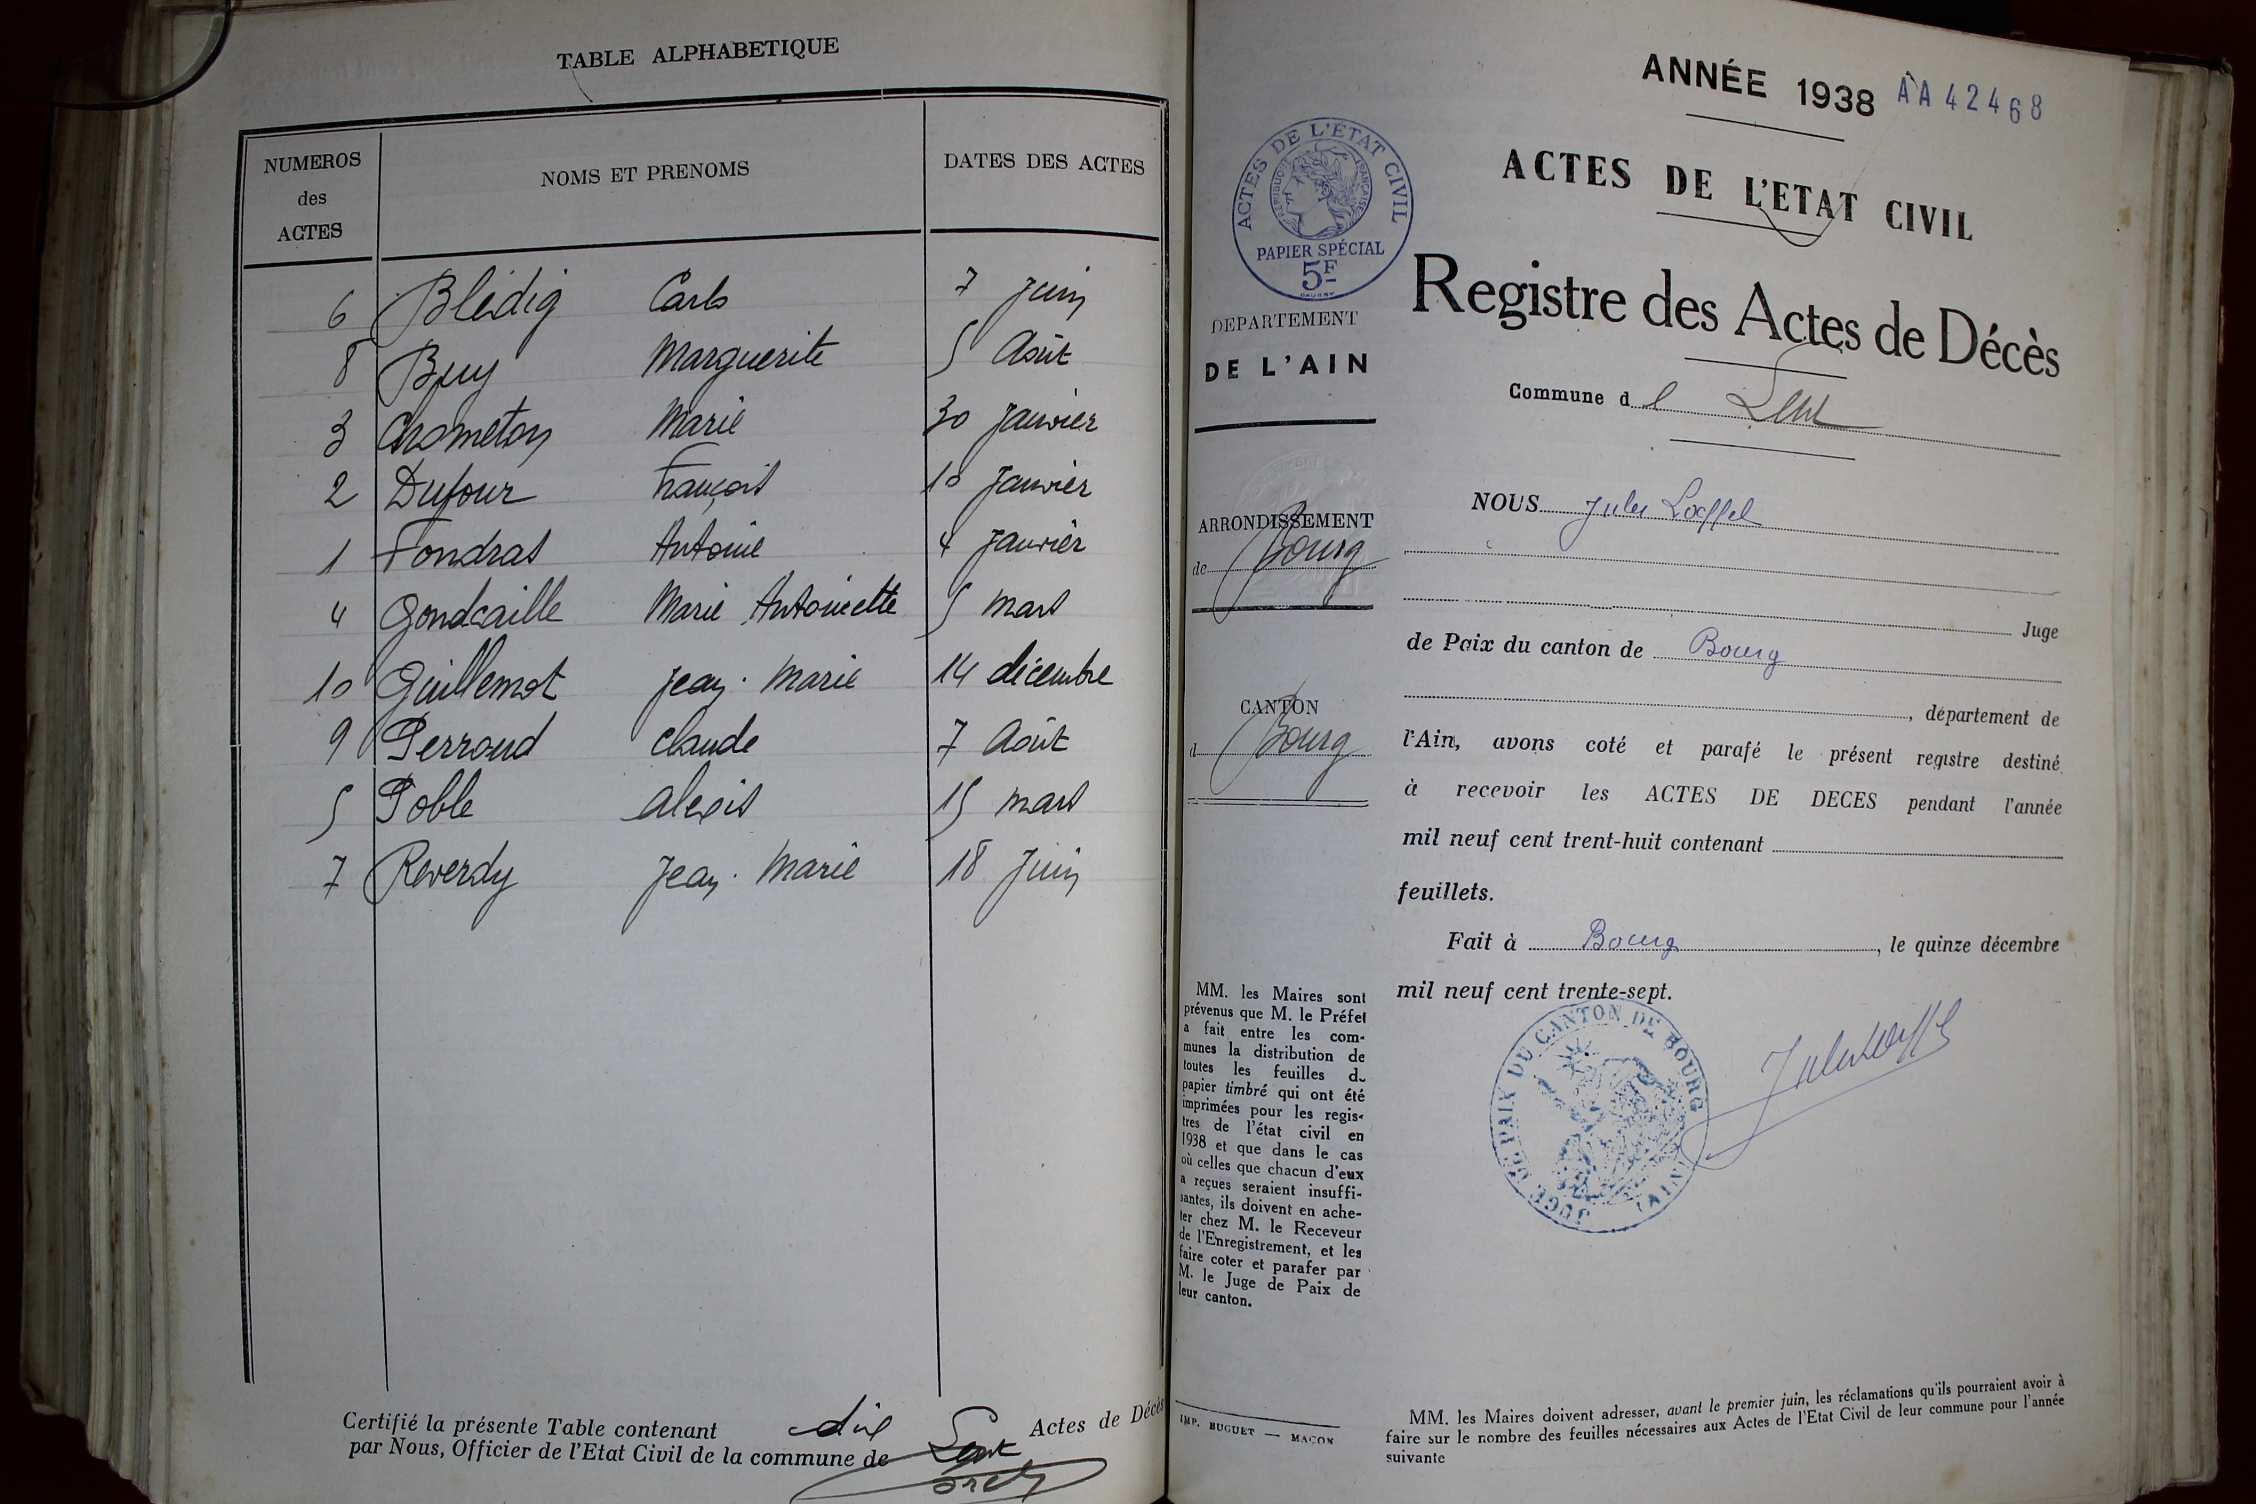 TABLE ALPHABETIQUE
NUMEROS des ACTES NOMS ET PRENOMS DATES DES ACTES
6 Blédig Carlo 7 Juin
8 Buy Marguerite 5 Août
3 Chrometon Marie 30 Janvier
2 Dufour François 10 Janvier
1 Fondras Antoine 4 Janvier
4 Gondcaille Marie Antoinette 5 mars
10 Guillemot Jean-Marie 14 décembre
9 Perroud Claude 7 Août
5 Poble Alexis 15 mars
7 Reverdy Jean-Marie 18 Juin
Certifié la présente Table contenant dix Actes de Décès
par Nous, Officier de l'Etat Civil de la commune de Lent
ANNÉE 1938 AA42468
ACTES DE L'ETAT CIVIL
Registre des Actes de Décès
Commune de Lent
ACTES DE L'ÉTAT CIVIL
RÉPUBLIQUE FRANÇAISE
PAPIER SPÉCIAL
5F
DEPARTEMENT
DE L'AIN
ARRONDISSEMENT
de Bourg
CANTON
d Bourg
MM. les Maires sont
prévenus que M. le Préfet
a fait entre les com-
munes la distribution de
toutes les feuilles du
papier timbré qui ont été
imprimées pour les regis-
tres de l'état civil en
1938 et que dans le cas
où celles que chacun d'eux
a reçues seraient insuffi-
santes, ils doivent en ache-
ter chez M. le Receveur
de l'Enregistrement, et les
faire coter et parafer par
M. le Juge de Paix de
leur canton.
IMP. BUGUET — MACON
NOUS Jules Loeffel
Juge
de Paix du canton de Bourg
, département de
l'Ain, avons coté et parafé le présent registre destiné
à recevoir les ACTES DE DECES pendant l'année
mil neuf cent trent-huit contenant
feuillets.
Fait à Bourg, le quinze décembre
mil neuf cent trente-sept.
JUGE DE PAIX DU CANTON DE BOURG
(AIN)
Jules Loeffel
MM. les Maires doivent adresser, avant le premier juin, les réclamations qu'ils pourraient avoir à
faire sur le nombre des feuilles nécessaires aux Actes de l'Etat Civil de leur commune pour l'année
suivante